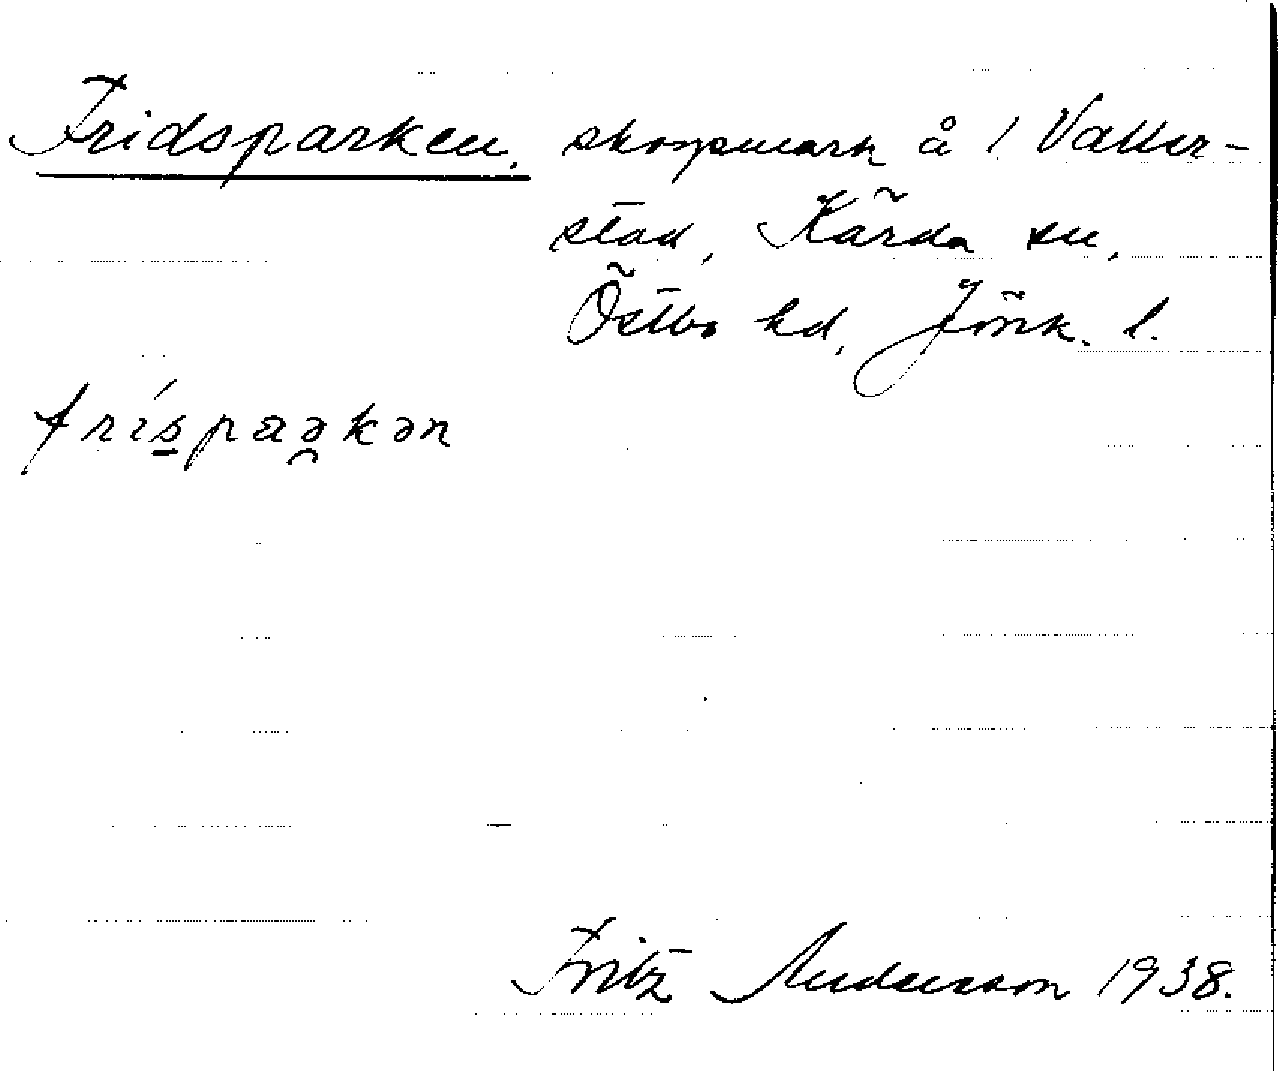 Fridsparken, skogsmark å 1 Valler-
stad, Kärda sn,
Östbo hd, Jönk. l.
frí̱spaə̯kən
Fritz Andersson 1938.